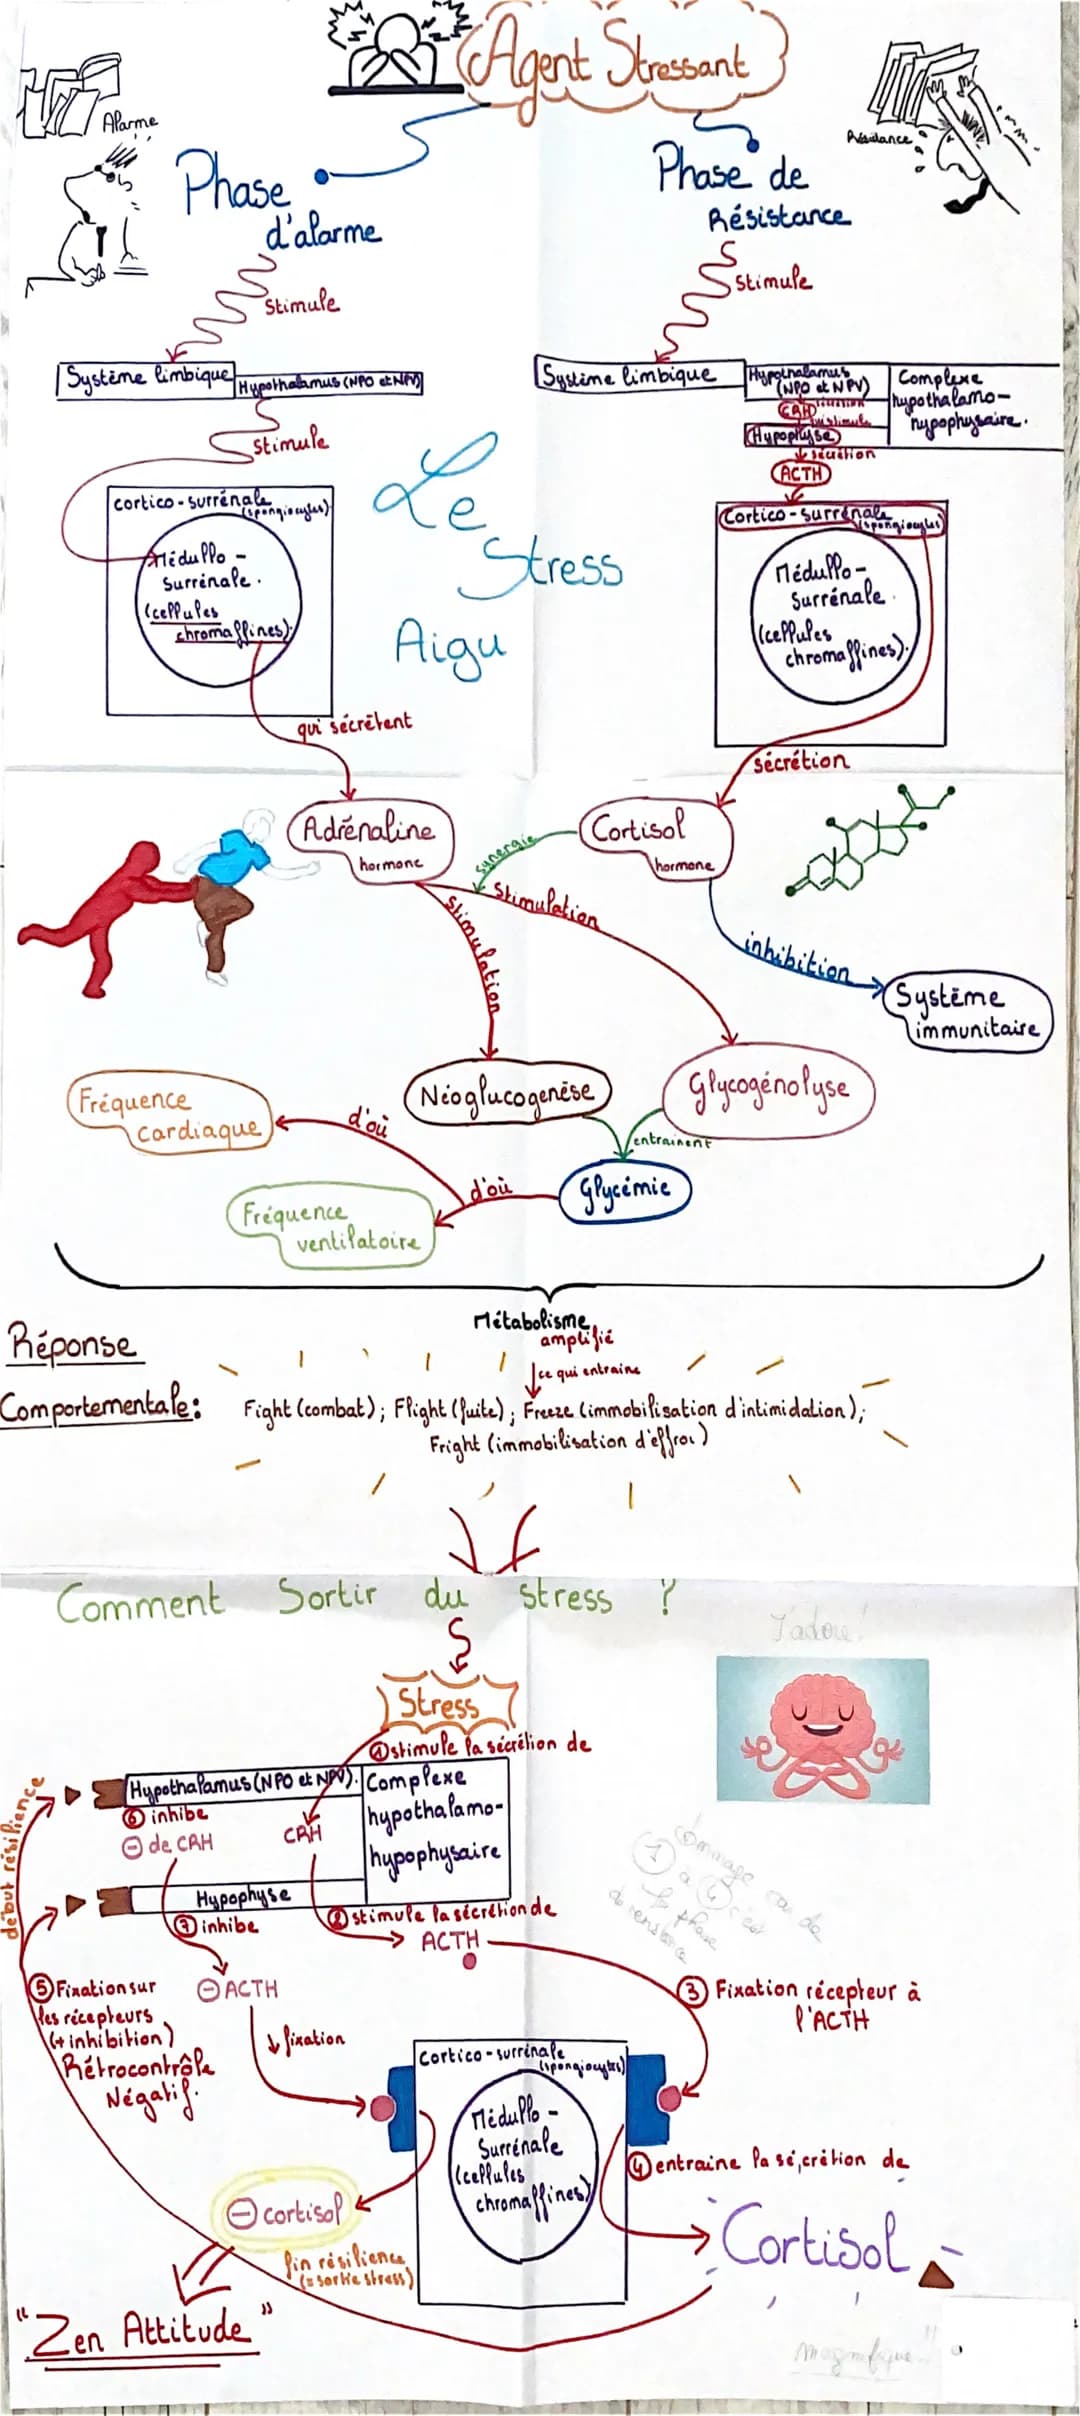 Agent Stressant
Alarme
Résistance
Phase
d'alarme
Phase de
Résistance
Stimule
Stimule
Système limbique
Hypothalamus (NPO et NPV)
Système limbique
Hypothalamus
(NPO et NPV)
CRH
Hypophyse
sécrétion
ACTH
Complexe
hypothalamo-
hypophysaire.
Stimule
cortico-surrénale
(spongiocytes)
Médullo-
Surrénale.
(cellules
chromaffines).
Le
Stress
Aigu
Cortico-surrénale
(spongiocytes)
Médullo-
Surrénale.
(cellules
chromaffines).
qui sécrètent
sécrétion
Adrénaline
hormone
Cortisol
hormone
synergie
Stimulation
Stimulation
inhibition
Système
immunitaire
Néoglucogenèse
Glycogénolyse
Fréquence
cardiaque
d'où
entrainent
d'où
Glycémie
Fréquence
ventilatoire
Métabolisme
amplifié
Réponse
ce qui entraine
Comportementale:
Fight (combat); Flight (fuite); Freeze (immobilisation d'intimidation);
Fright (immobilisation d'effroi)
Comment Sortir du stress ?
J'adore!
Stress
① stimule la sécrétion de
Hypothalamus (NPO et NPV).
Complexe
hypothalamo-
hypophysaire
⑥ inhibe
⊖ de CRH
CRH
début résilience
Hypophyse
⑦ inhibe
② stimule la sécrétion de
ACTH
Dommage car de
① à ④ c'est
la phase
de résistance
⑤ Fixation sur
les récepteurs
(+ inhibition)
Rétrocontrôle
Négatif.
⊖ ACTH
③ Fixation récepteur à
l'ACTH
↓ fixation
Cortico-surrénale
(spongiocytes)
Médullo-
Surrénale
(cellules
chromaffines)
④ entraine la sécrétion de
⊖ cortisol
Cortisol
fin résilience
(= sortie stress)
"Zen Attitude"
magnifique!!